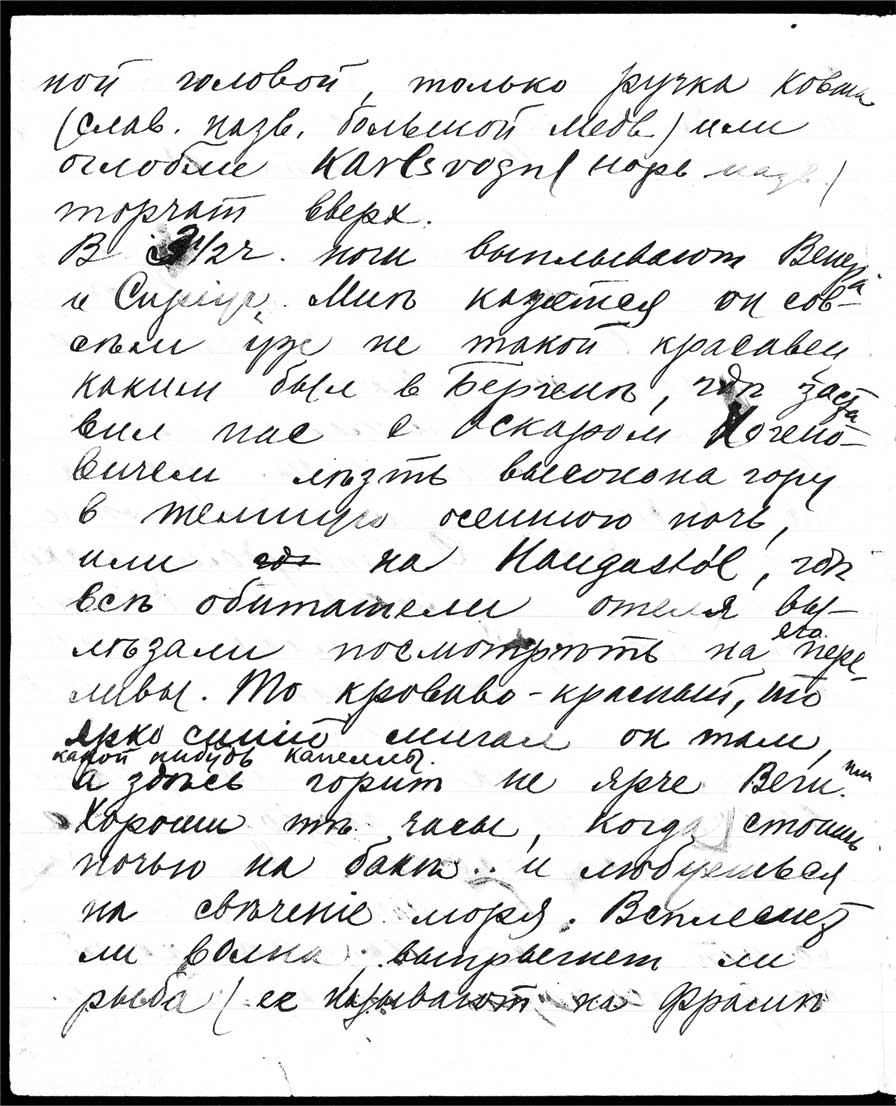 ной головой, только ручка ковша
(слав. назв. большой медв) или
оглобли Karlsvogn (норв назв)
торчат вверх.
В 3 1/2 ч. ночи выплывают Венера
и Сиріус. Мнѣ кажется он сов-
сѣм уж не такой красавец
каким был в Бергенѣ, гдѣ заста
вил нас с Оскаром
вичем лѣзть высоко на гору
в темную осеннюю ночь,
или гдѣ на Haugastöl, гдѣ
всѣ обитатели отеля вы-
лѣзали посмотрѣть на его пере-
ливы. То кроваво-красный, то
ярко синій мигал он там,
а здѣсь горит не ярче Веги или
какой нибудь капеллы.
Хороши тѣ часы, когда стоишь
ночью на бакѣ.. и любуешься
на свѣченіе моря. Всплеснет
ли волна, выпрыгнет ли
рыба (ее называют на Фрамѣ